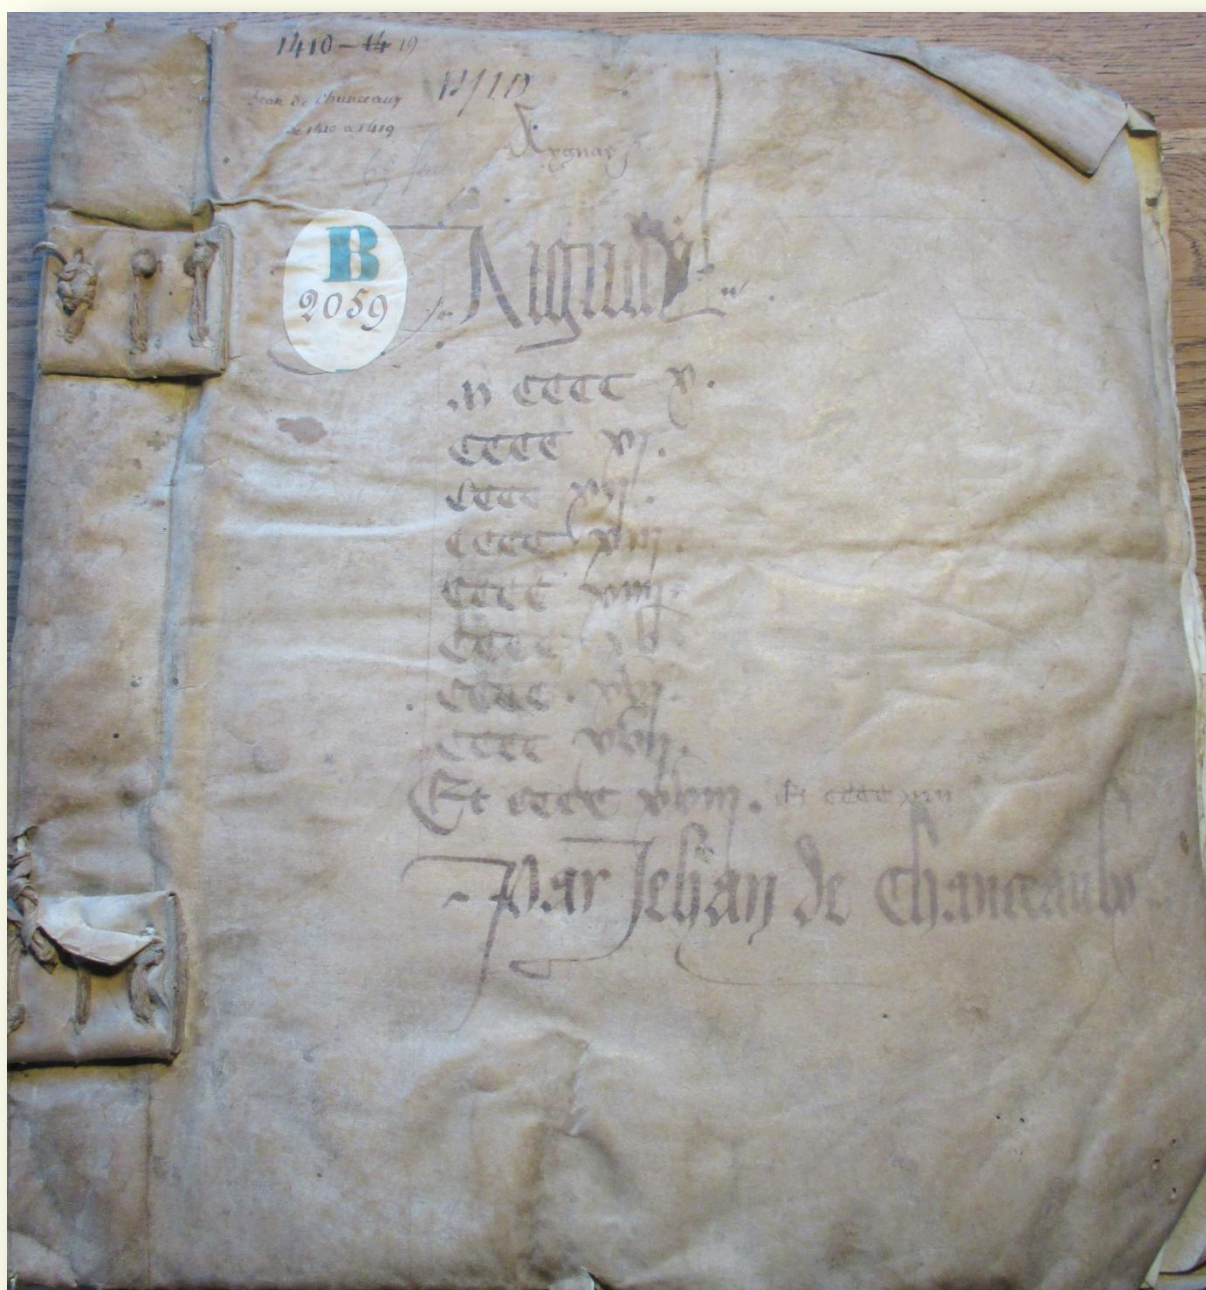 1410 - 14 19
Jean de Chanceaux
de 1410 a 1419
Aygnay
B
2059
Aignay
.M CCCC X.
CCCC XJ.
CCCC XIJ.
CCCC XIIJ.
CCCC XIIIJ.
CCCC XV
. CCCC . XVJ.
CCCC XVIJ.
Et CCCC XVIIJ. Et CCCC XIX
Par Jehan de Chanceaulx